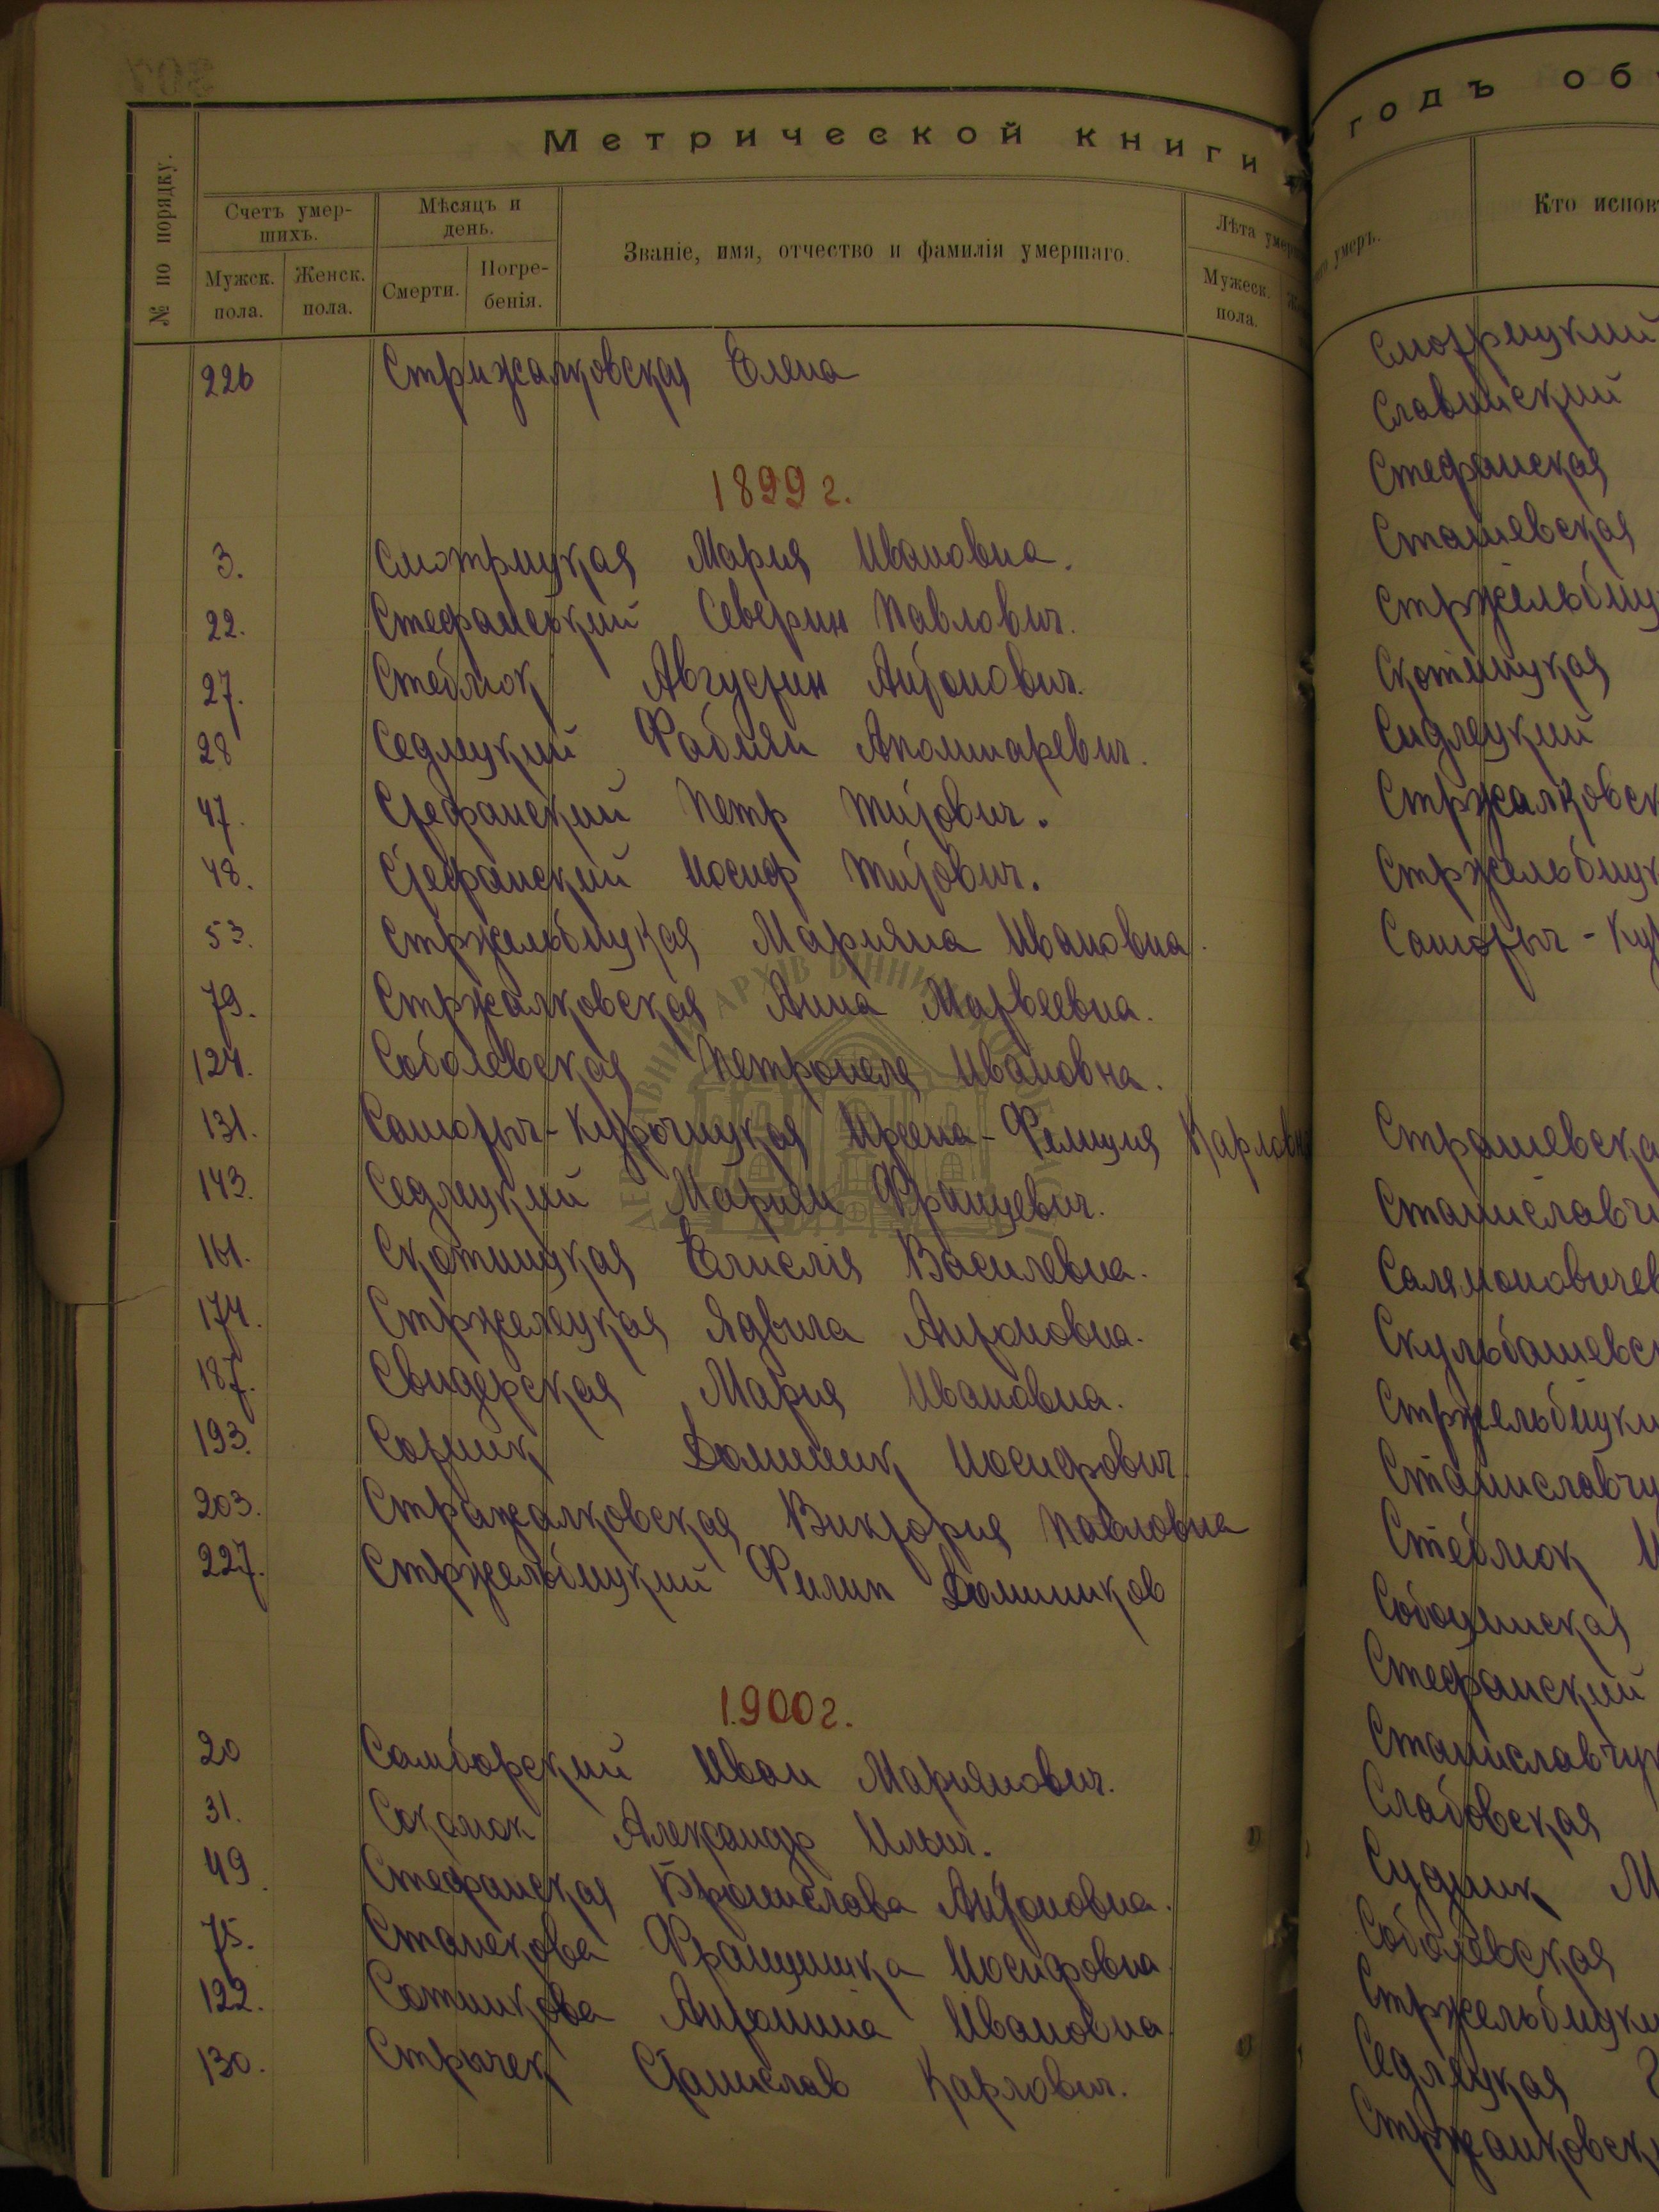 Метрической книги
№ по порядку.
Счетъ умер-
шихъ.
Мѣсяцъ и
день.
Званіе, имя, отчество и фамилія умершаго.
Лѣта умерш
Мужск.
пола.
Женск.
пола.
Смерти.
Погре-
бенія.
Мужеск.
пола.
226 Стрижалковская Елена
1899 г.
3. Смотрицкая Мария Ивановна.
22. Стефанський Северин Павлович.
27. Стеблюк Августин Антонович.
28 Седлецкий Фабиян Аполинаревич.
47. Стефанский Петр Титович.
48. Стефанский Иосиф Титович.
53. Стржельбицкая Марияна Ивановна.
79. Стржалковская Анна Матвеевна.
124. Соболевская Петронеля Ивановна.
131. Саморыч-Курочицкая Ирена-Фелиция Карловна
143. Седлецкий Мариян Францевич.
161. Скотницкая Василевна.
174. Стржелецкая Ядвига Антоновна.
187. Свидерская Мария Ивановна.
193. Сотник Доминик Иосифович.
203. Стражалковская Виктория Павловна
227. Стржельбицкий Филип Домиников
1900 г.
20 Самборский Иван Мариянович.
31. Соколюк Александр Ильич.
49. Стефанская Бронислава Антоновна.
75. Станекова Францишка Иосифовна.
122. Сотникова Антонина Ивановна.
130. Стрычек Станислав Карлович.
годъ об
умеръ.
Кто испов
Смотрицкий
Славинский
Стефанская
Сташевская
Стржельбиц
Скотницкая
Сидлецкий
Стржалковск
Стржельбицк
Саморыч-Кур
Страшевска
Станиславчу
Салямоновичев
Скульбашевс
Стржельбицки
Станиславчу
Стеблюк И
Собоцинская
Стефанский
Станиславчук
Слабовская
Судник М
Соболевская
Стржельбицки
Седлецкая
Стржалковск